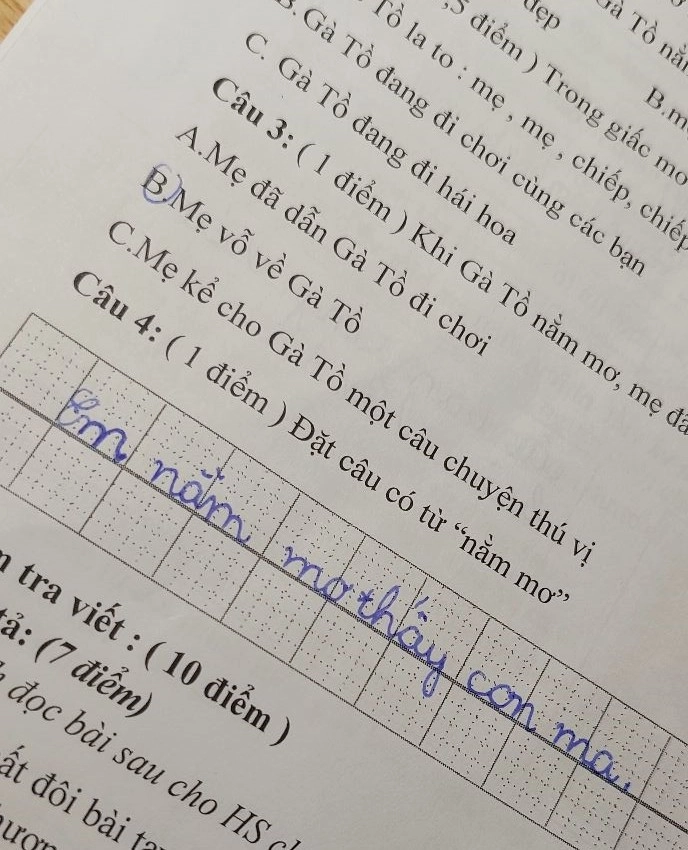 đẹp
Gà Tồ nằm
B.m
,5 điểm ) Trong giấc mơ
Tồ la to : mẹ , mẹ , chiếp, chiếp
B. Gà Tồ đang đi chơi cùng các bạn
C. Gà Tồ đang đi hái hoa
Câu 3: ( 1 điểm ) Khi Gà Tồ nằm mơ, mẹ đã
A.Mẹ đã dẫn Gà Tồ đi chơi
B.Mẹ vỗ về Gà Tồ
C.Mẹ kể cho Gà Tồ một câu chuyện thú vị
Câu 4: ( 1 điểm ) Đặt câu có từ “nằm mơ”
Em nằm mơ thấy con ma.
tra viết : ( 10 điểm )
tả: (7 điểm)
đọc bài sau cho HS
ất đôi bài